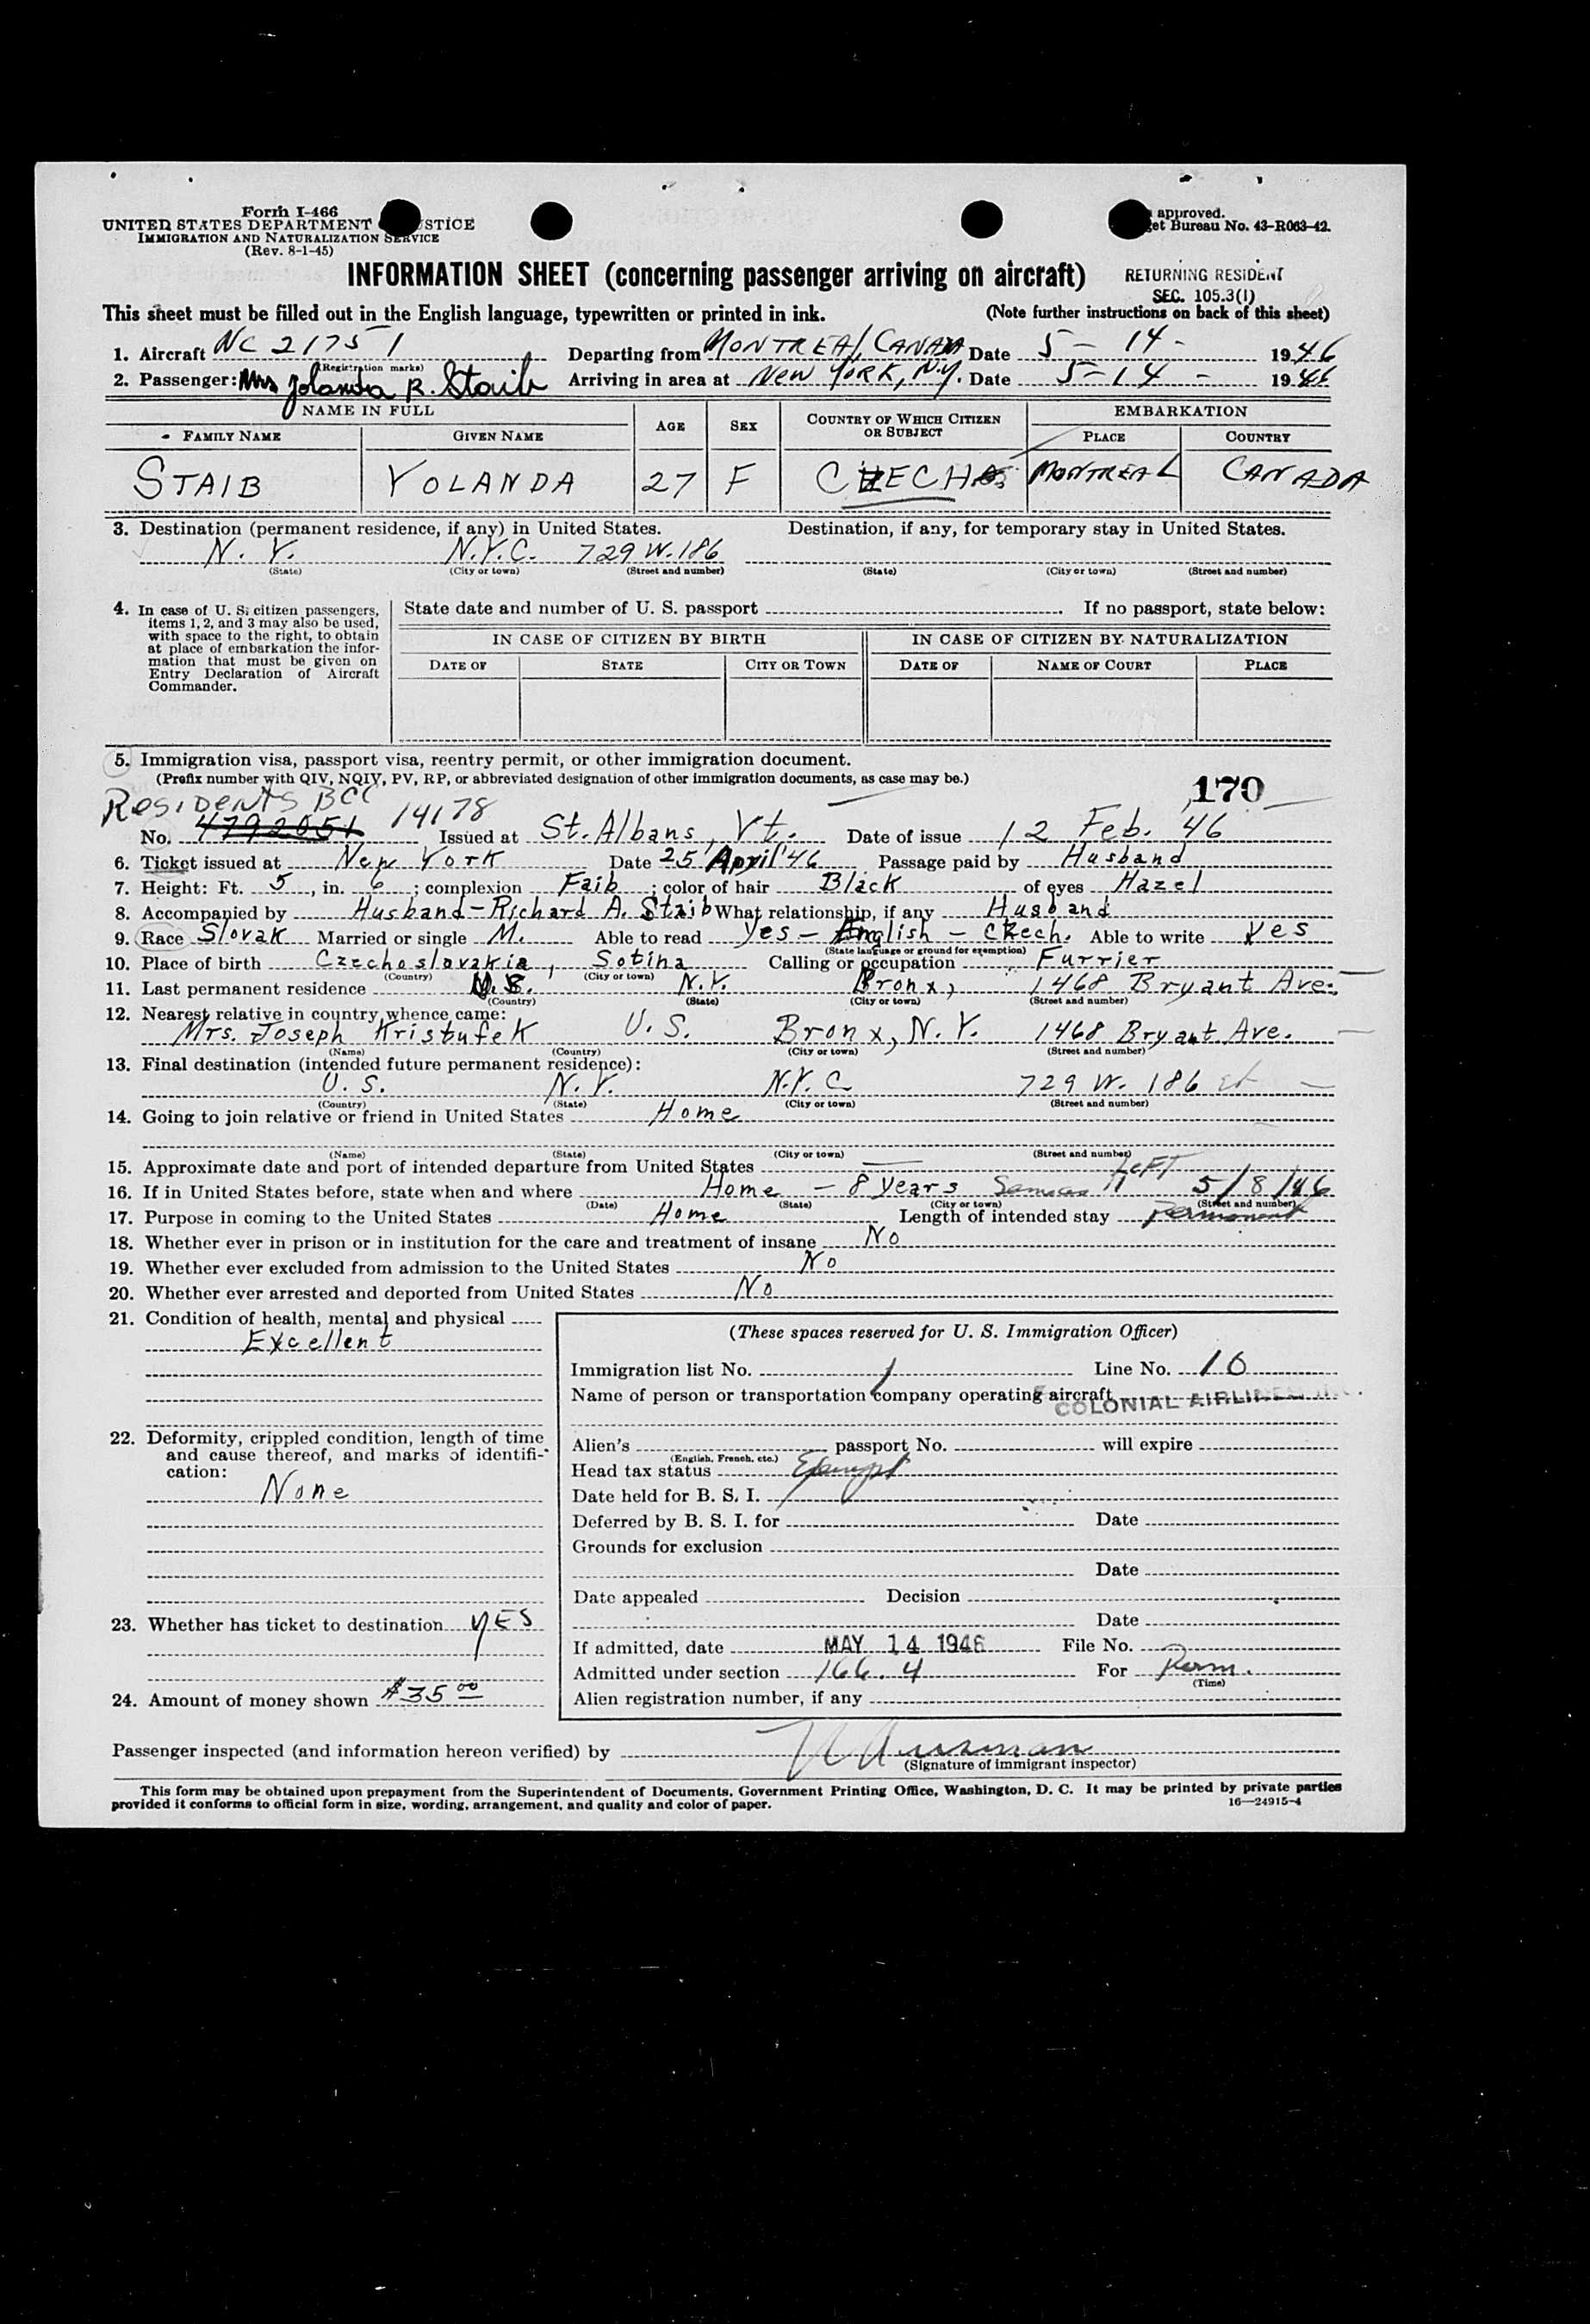 Form I-466
UNITED STATES DEPARTMENT USTICE
IMMIGRATION AND NATURALIZATION SERVICE
(Rev. 8-1-45)
approved.
get Bureau No. 43-R063-42.
INFORMATION SHEET (concerning passenger arriving on aircraft)
RETURNING RESIDENT
SEC. 105.3(1)
This sheet must be filled out in the English language, typewritten or printed in ink. (Note further instructions on back of this sheet)
1. Aircraft NC 21751 Departing from MONTREAL, CANADA Date 5 - 14 - 1946
(Registration marks)
2. Passenger: Mrs Yolanda R. Staib Arriving in area at NEW YORK, N.Y. Date 5 - 14 - 1946
NAME IN FULL AGE SEX COUNTRY OF WHICH CITIZEN OR SUBJECT EMBARKATION
FAMILY NAME GIVEN NAME PLACE COUNTRY
STAIB YOLANDA 27 F CZECH MONTREAL CANADA
3. Destination (permanent residence, if any) in United States. Destination, if any, for temporary stay in United States.
N. Y. N.Y.C. 729 W. 186
(State) (City or town) (Street and number) (State) (City or town) (Street and number)
4. In case of U. S. citizen passengers, items 1, 2, and 3 may also be used, with space to the right, to obtain at place of embarkation the information that must be given on Entry Declaration of Aircraft Commander.
State date and number of U. S. passport If no passport, state below:
IN CASE OF CITIZEN BY BIRTH IN CASE OF CITIZEN BY NATURALIZATION
DATE OF STATE CITY OR TOWN DATE OF NAME OF COURT PLACE
5. Immigration visa, passport visa, reentry permit, or other immigration document.
(Prefix number with QIV, NQIV, PV, RP, or abbreviated designation of other immigration documents, as case may be.)
170
RESIDENTS BCC 14178
No. 4792051 Issued at St. Albans, Vt. Date of issue 12 Feb. '46
6. Ticket issued at New York Date 25 April '46 Passage paid by Husband
7. Height: Ft. 5, in. 6; complexion Faib; color of hair Black of eyes Hazel
8. Accompanied by Husband - Richard A. Staib What relationship, if any Husband
9. Race Slovak Married or single M. Able to read Yes - English - Czech. Able to write Yes
(State language or ground for exemption)
10. Place of birth Czechoslovakia, Sotina Calling or occupation Furrier
(Country) (City or town)
11. Last permanent residence U.S. N.Y. Bronx, 1468 Bryant Ave.
(Country) (State) (City or town) (Street and number)
12. Nearest relative in country whence came:
Mrs. Joseph Kristufek U. S. Bronx, N. Y. 1468 Bryant Ave.
(Name) (Country) (City or town) (Street and number)
13. Final destination (intended future permanent residence):
U. S. N. Y. N.Y.C 729 W. 186 St
(Country) (State) (City or town) (Street and number)
14. Going to join relative or friend in United States Home
(Name) (State) (City or town) (Street and number)
15. Approximate date and port of intended departure from United States
LEFT
16. If in United States before, state when and where Home - 8 years 5/8/46
(Date) (State) (City or town) (Street and number)
17. Purpose in coming to the United States Home Length of intended stay Permanent
18. Whether ever in prison or in institution for the care and treatment of insane No
19. Whether ever excluded from admission to the United States No
20. Whether ever arrested and deported from United States No
21. Condition of health, mental and physical
Excellent
22. Deformity, crippled condition, length of time and cause thereof, and marks of identification:
None
23. Whether has ticket to destination YES
24. Amount of money shown $35.00
(These spaces reserved for U. S. Immigration Officer)
Immigration list No. 1 Line No. 10
Name of person or transportation company operating aircraft
COLONIAL AIRLINES INC.
Alien's passport No. will expire
(English, French, etc.)
Head tax status Exempt
Date held for B. S. I.
Deferred by B. S. I. for Date
Grounds for exclusion
Date
Date appealed Decision
Date
If admitted, date MAY 14 1946 File No.
Admitted under section 166.4 For Perm.
(Time)
Alien registration number, if any
Passenger inspected (and information hereon verified) by
(Signature of immigrant inspector)
This form may be obtained upon prepayment from the Superintendent of Documents, Government Printing Office, Washington, D. C. It may be printed by private parties
provided it conforms to official form in size, wording, arrangement, and quality and color of paper. 16—24915-4